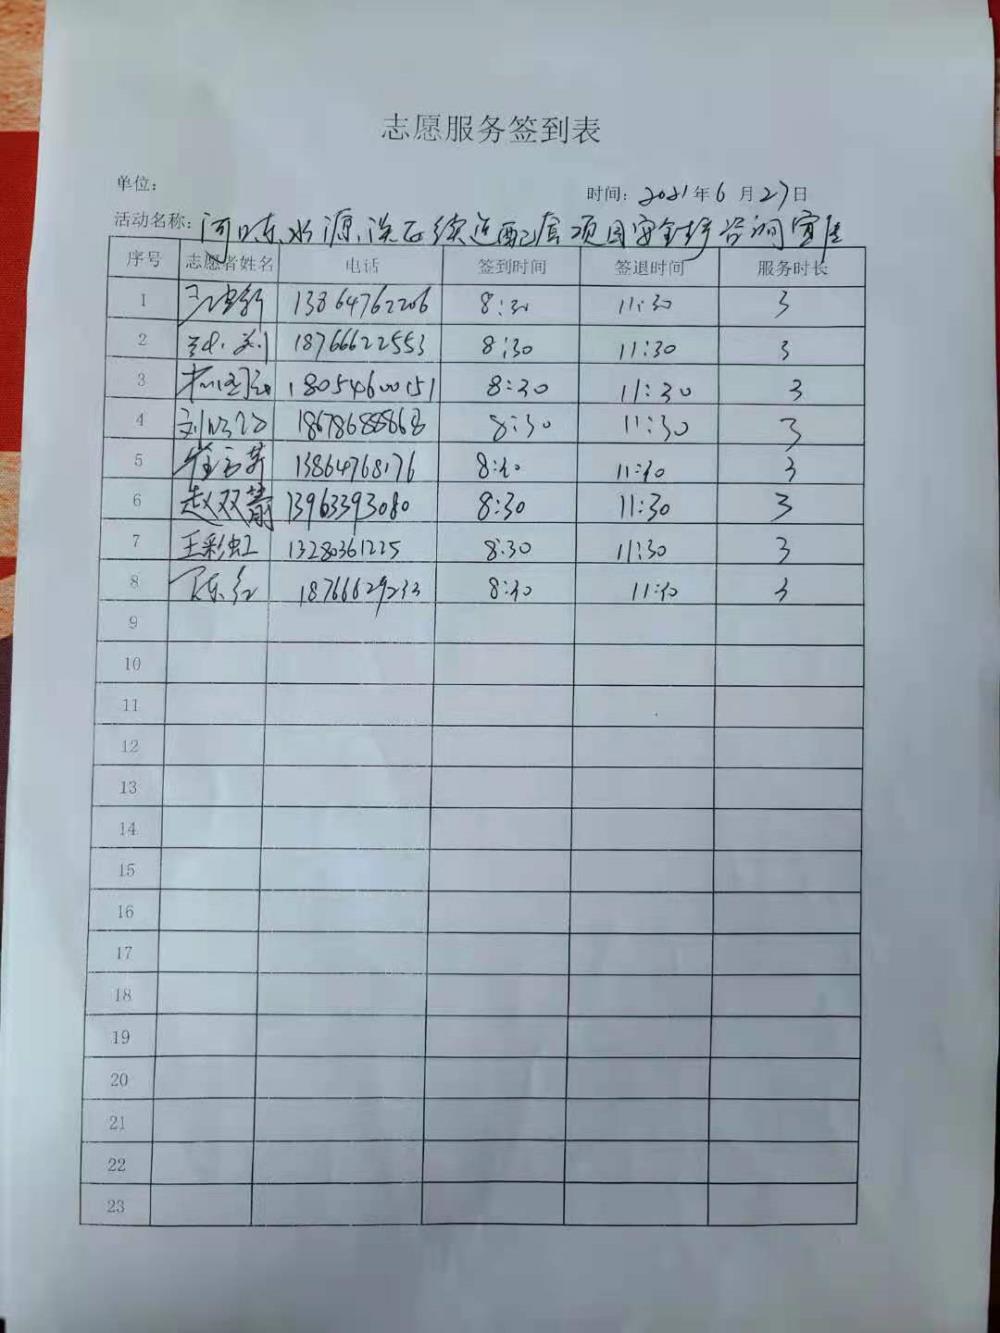 志愿服务签到表
单位:
时间: 2021年6月27日
活动名称: 河 水源 续建配套项目安全 咨询宣
序号 志愿者姓名 电话 签到时间 签退时间 服务时长
1 13864762206 8:30 11:30 3
2 18766622553 8:30 11:30 3
3 18054600151 8:30 11:30 3
4 刘 18678688868 8:30 11:30 3
5 崔 13864768176 8:30 11:30 3
6 赵双 13963393080 8:30 11:30 3
7 王彩虹 13280361225 8:30 11:30 3
8 陈红 18766629233 8:30 11:30 3
9
10
11
12
13
14
15
16
17
18
19
20
21
22
23